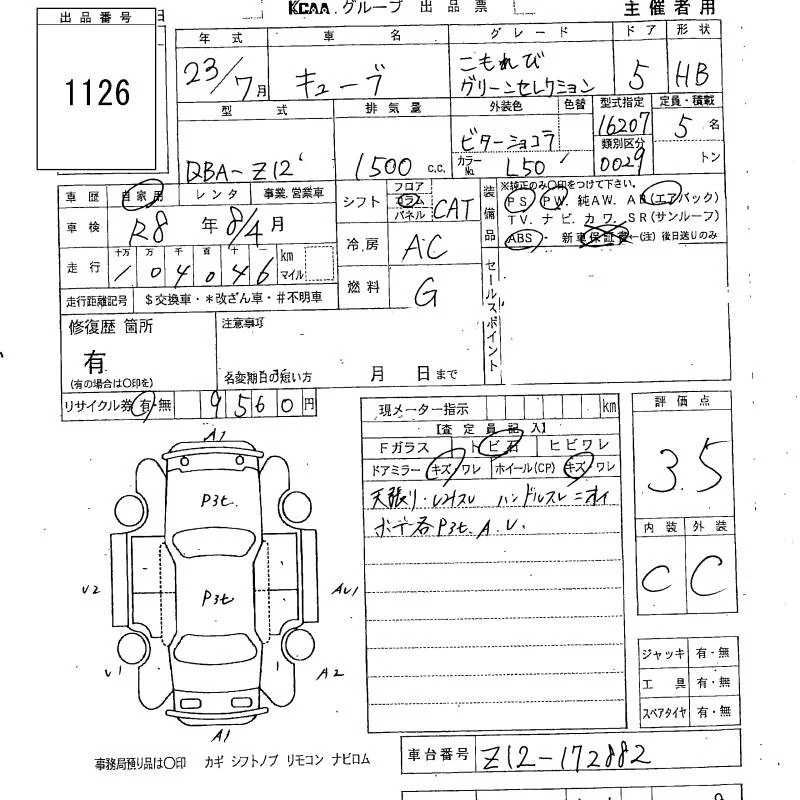 KCAA グループ 出品票 主催者用
出品番号
1126
年式 車名 グレード ドア 形状
23/7月 キューブ こもれび
グリーンセレクション 5 HB
型式 排気量 外装色 色替 型式指定 定員・積載
16207 5名
類別区分
DBA-Z12 1500 c.c. ビターショコラ
カラーNo. L50 0029 トン
車歴 自家用 レンタ 事業.営業車
シフト フロア
コラム
パネル CAT
装備品 ※純正のみ〇印をつけて下さい。
PS PW. 純AW. AB(エアバック)
TV. ナビ. カワ. SR(サンルーフ)
ABS・ 新車保証書←(注) 後日送りのみ
車検 R8年 8/4月
冷房 AC
走行 十万 万 千 百 十 一
1 0 4 0 4 6 km
マイル
走行距離記号 $交換車・*改ざん車・#不明車
燃料 G
セールスポイント
修復歴 箇所
有
(有の場合は〇印を)
注意事項
名変期日の短い方 月 日まで
リサイクル券 有・無 9 5 6 0 円
現メーター指示 km
【査定員記入】
Fガラス トビ石 ヒビワレ
ドアミラー キズ・ワレ ホイール(CP) キズ・ワレ
ハンドルスレ ニオイ
P3t. A. U.
評価点
3.5
内装 外装
C C
A1
P3t.
P3t
U2
AU1
U1
A2
A1
ジャッキ 有・無
工具 有・無
スペアタイヤ 有・無
事務局預り品は〇印 カギ シフトノブ リモコン ナビロム
車台番号 Z12-172882